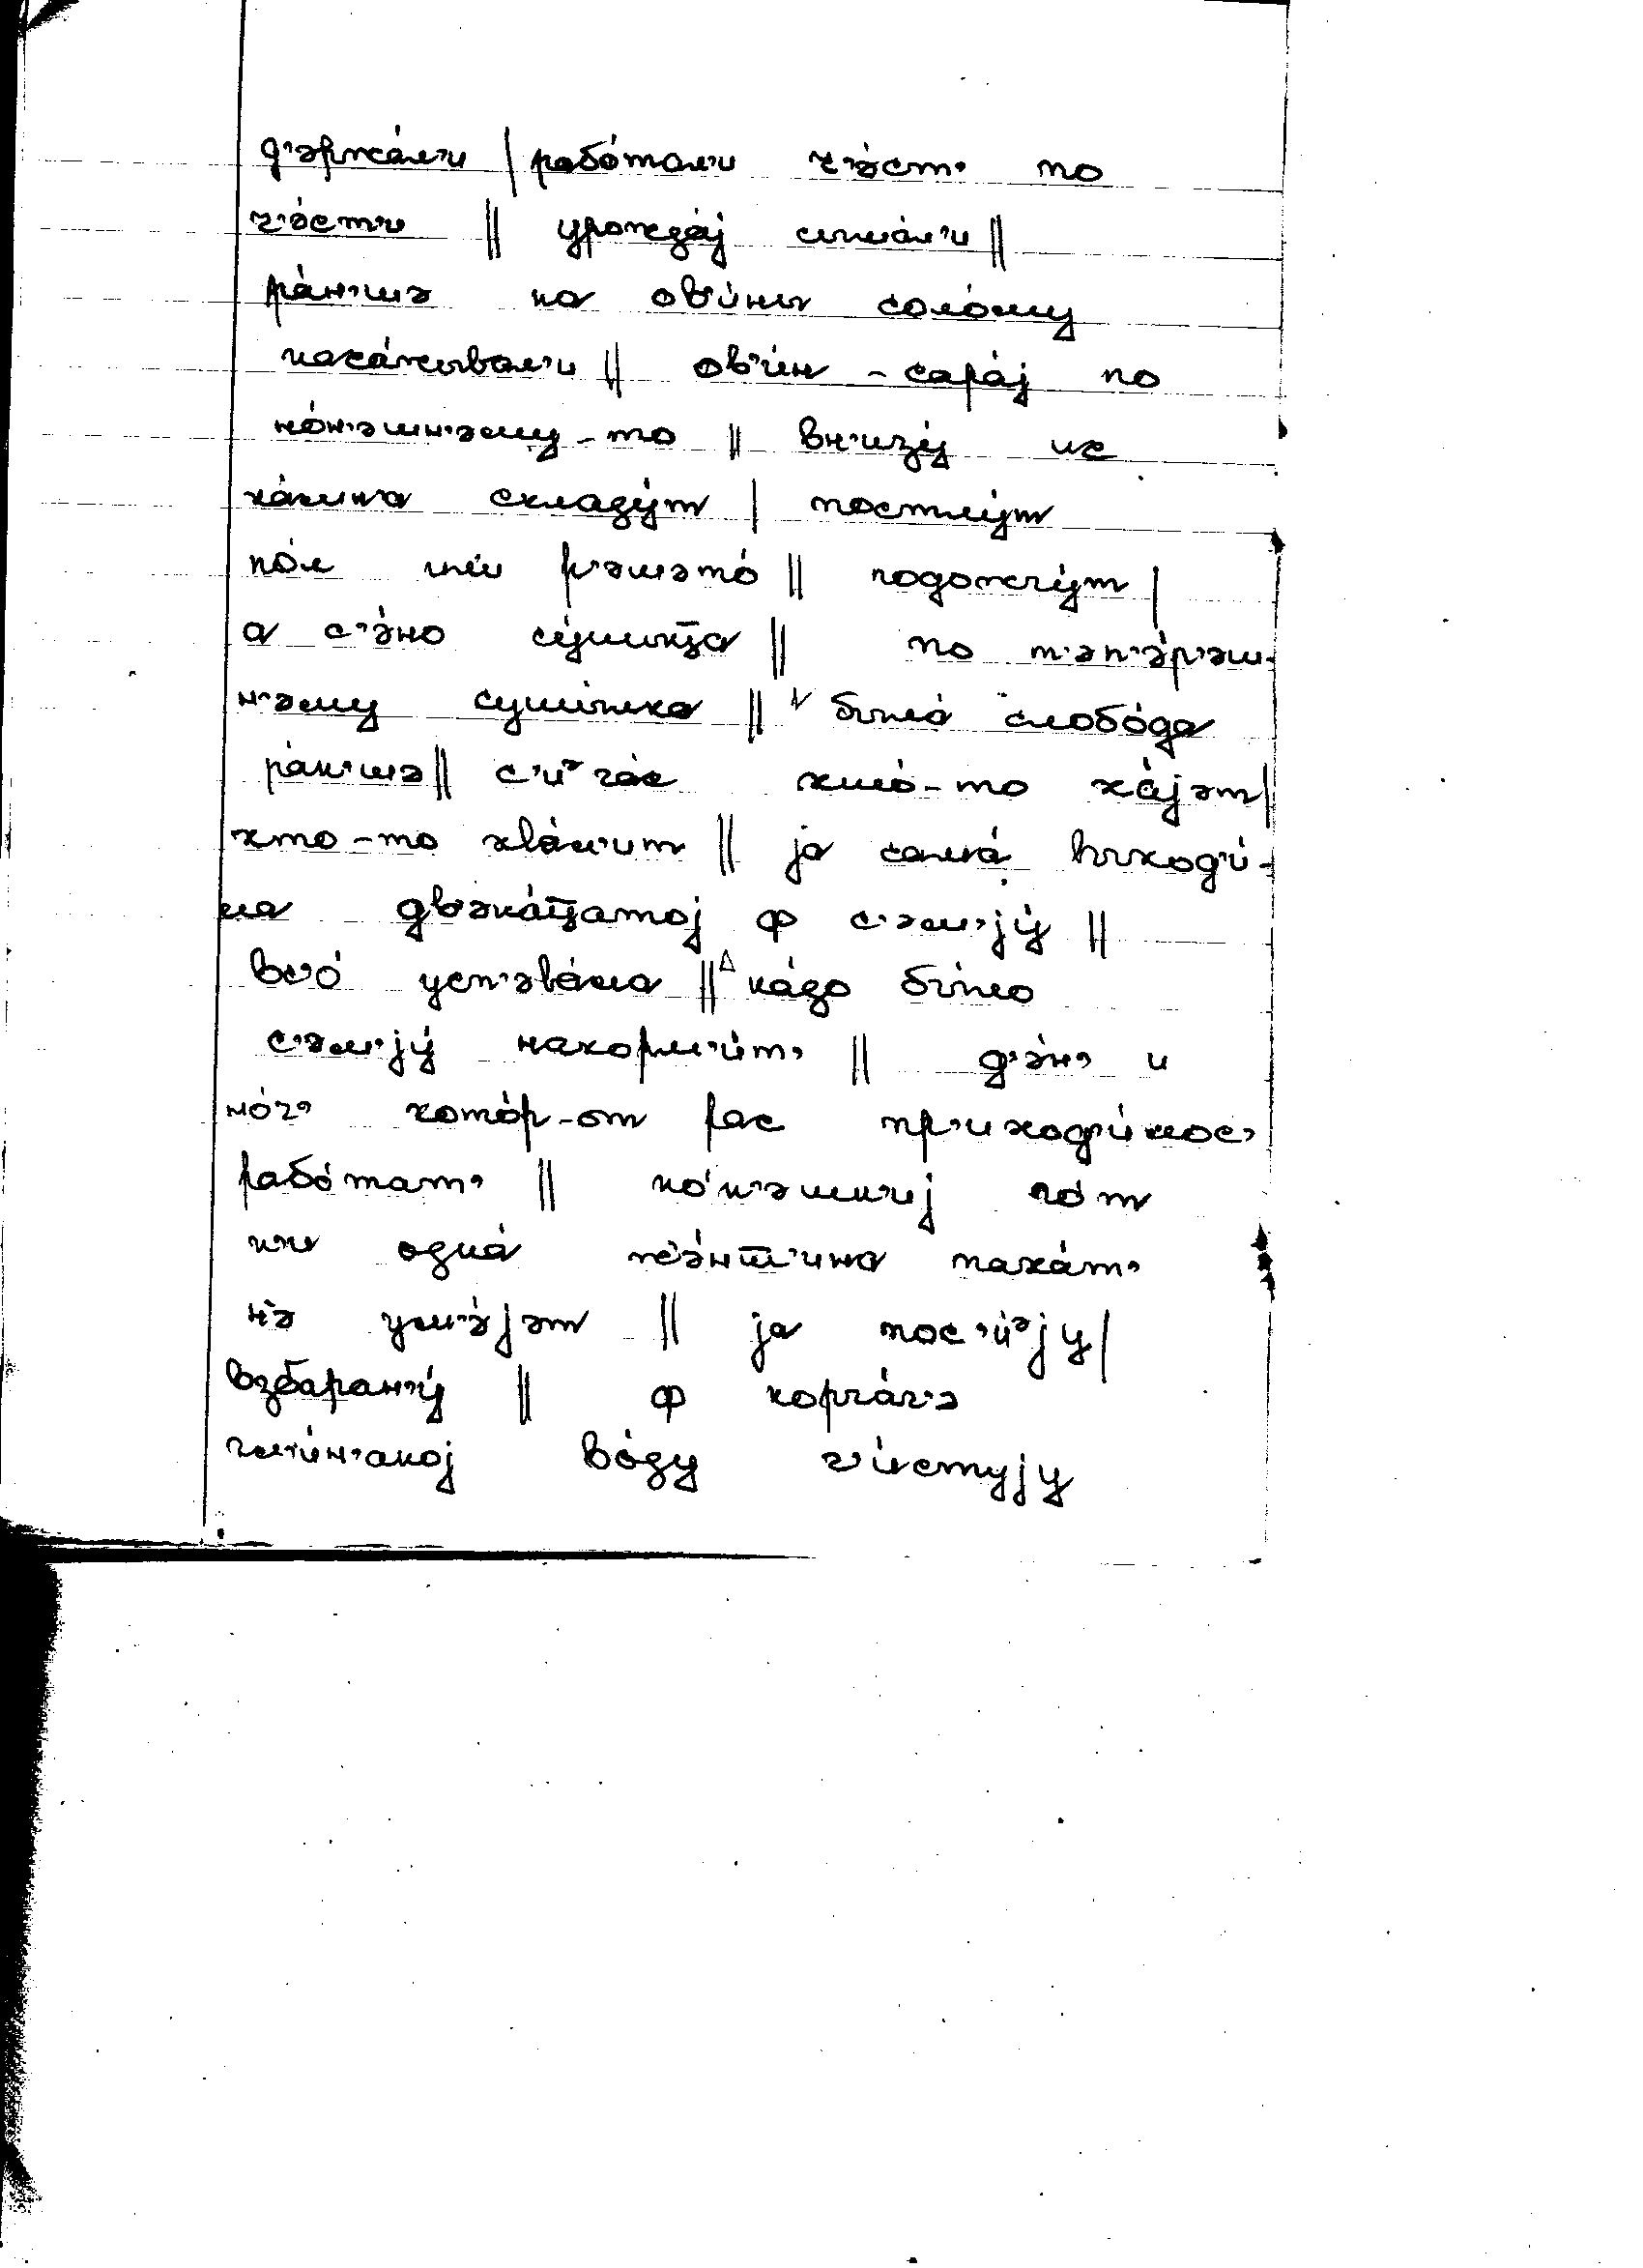 д'эржа́л'и | рабо́тал'и ч'а́ст' по
ч'а́ст'и || урожда́j сн'има́л'и ||
ра́н'шэ на ов'и́ны соло́му
наса́жывал'и || ов'и́н - сара́j по
но́н'эшн'эму-то || вн'изу́ ис
ка́мн'а складу́т | постлу́т
по́л р'эшэто́ || подожгу́т |
а с'э́но су́шыца || по т'эп'э́р'эш-
н'эму суши́лка || была́ слобо́да
ра́н'шэ || с'иэча́с кто́-то ха́jэт |
кто-то хва́л'ит || jа сама́ выход'и́-
ла двэна́цатоj ф с'эм'jу́ ||
вс'о́ усп'эва́ла || на́до бы́ло
с'эм'jу́ накорм'и́т' || д'э́н' и
но́ч' кото́р-от рас пр'иход'и́лос'
рабо́тат' || но́н'эшн'иj го́т
н'и одна́ же́нш'ина паха́т'
н'э ум'э́jэт || jа пос'и́эjу |
взбаран'у́ || ф корча́г'э
гл'и́н'аноj во́ду ч'и́стуjу